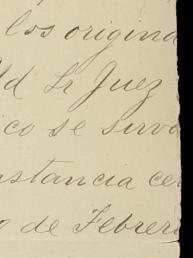 los origina
Vd Sr Juez
ico se sirva
nstancia ce
o de Febrer